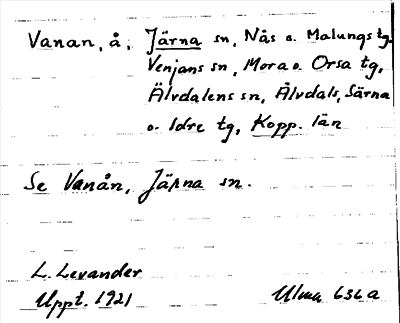 Vanan, å, Järna sn, Nås o. Malungs tg.
Venjans sn, Mora o. Orsa tg,
Älvdalens sn, Älvdals, Särna
o. Idre tg, Kopp. län
Se Vanån, Järna sn.
L. Levander
Uppt. 1921 Ulma 636 a